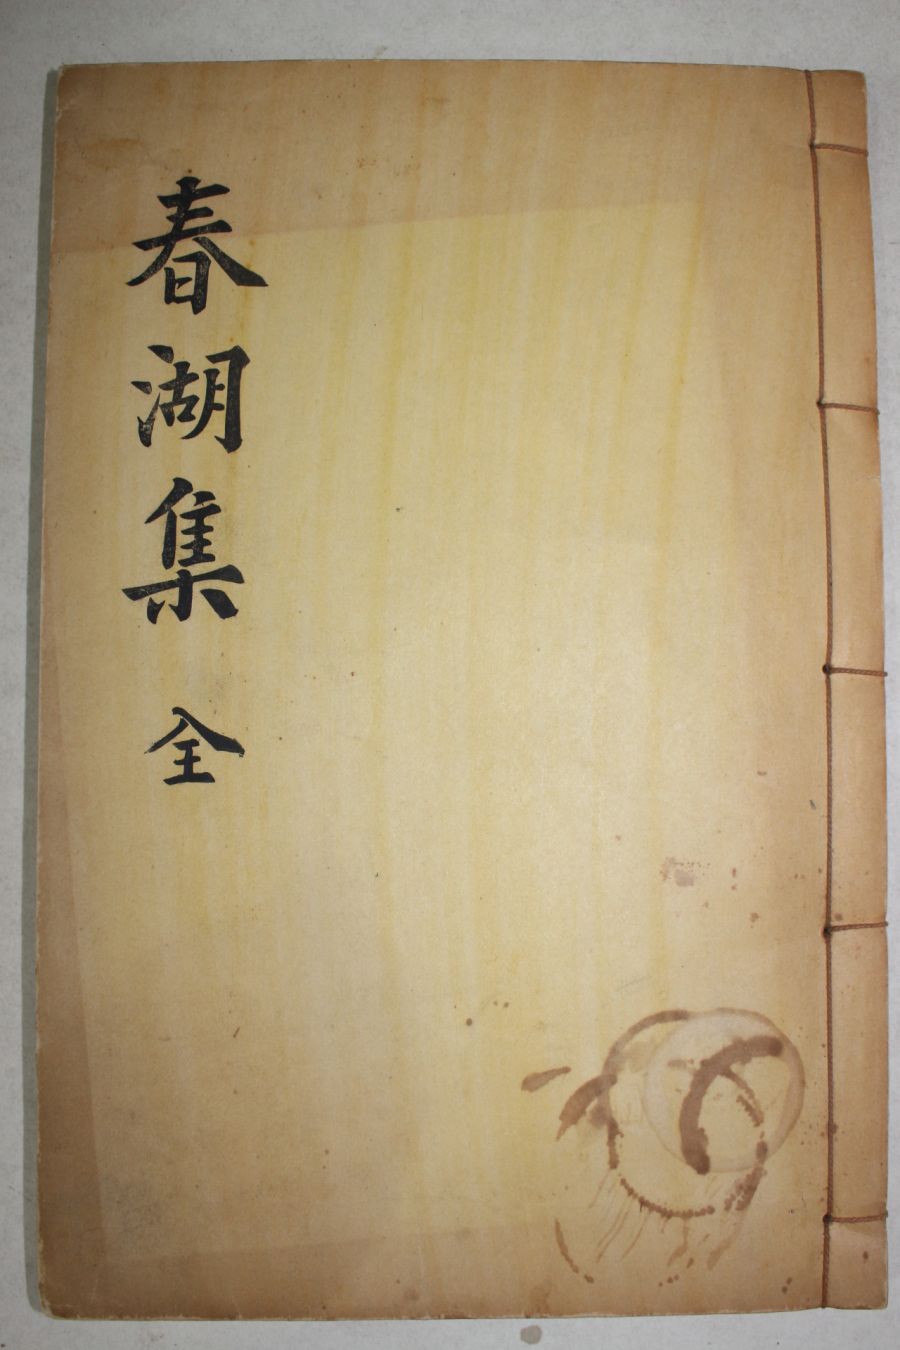 春湖集 全